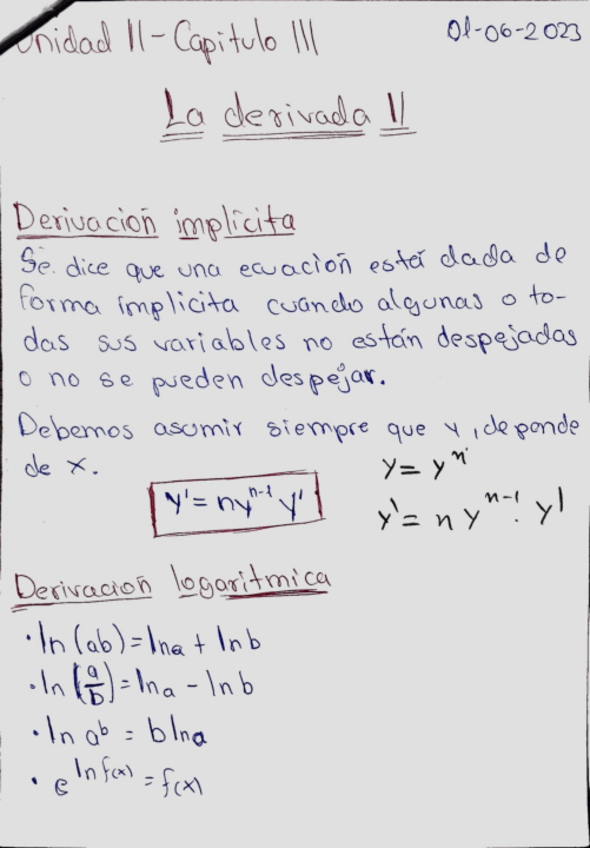 Unidad II - Capitulo III
01-06-2023
La derivada II
Derivación implícita
Se dice que una ecuación está dada de
forma implicita cuando algunas o to-
das sus variables no están despejadas
o no se pueden despejar.
Debemos asumir siempre que y, depende
de x.
y' = ny^{n-1} y'
y = y^n
y' = n y^{n-1} . y'
Derivación logaritmica
• ln (ab) = ln a + ln b
• ln (a/b) = ln a - ln b
• ln a^b = b ln a
• e^{ln f(x)} = f(x)